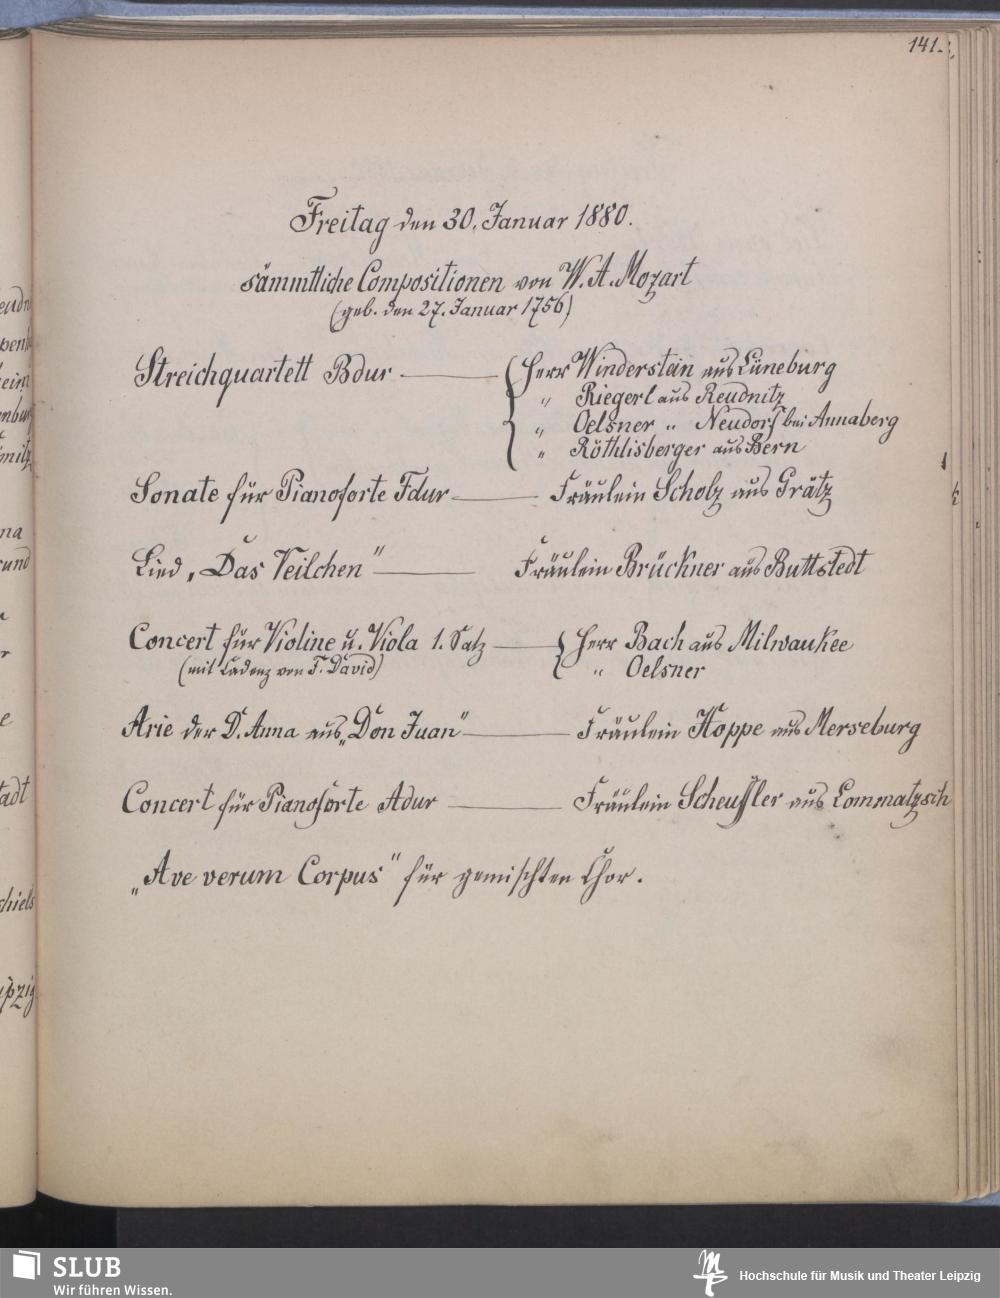 141.
Freitag den 30. Januar 1880.
sämmtliche Compositionen von W. A. Mozart
(geb. den 27. Januar 1756)
Streichquartett Bdur — Herr Winderstein aus Lüneburg
" Riegerl aus Reudnitz
" Oelsner " Neudorf bei Annaberg
" Röthlisberger aus Bern
Sonate für Pianoforte Fdur — Fräulein Scholz aus Grätz
Lied „Das Veilchen" — Fräulein Brückner aus Buttstedt
Concert für Violine u. Viola 1. Satz — Herr Bach aus Milwaukee
(mit Cadenz von F. David) " Oelsner
Arie der D. Anna aus „Don Juan" — Fräulein Hoppe aus Merseburg
Concert für Pianoforte Adur — Fräulein Scheuffler aus Lommatzsch
„Ave verum Corpus" für gemischten Chor.
SLUB
Wir führen Wissen.
Hochschule für Musik und Theater Leipzig